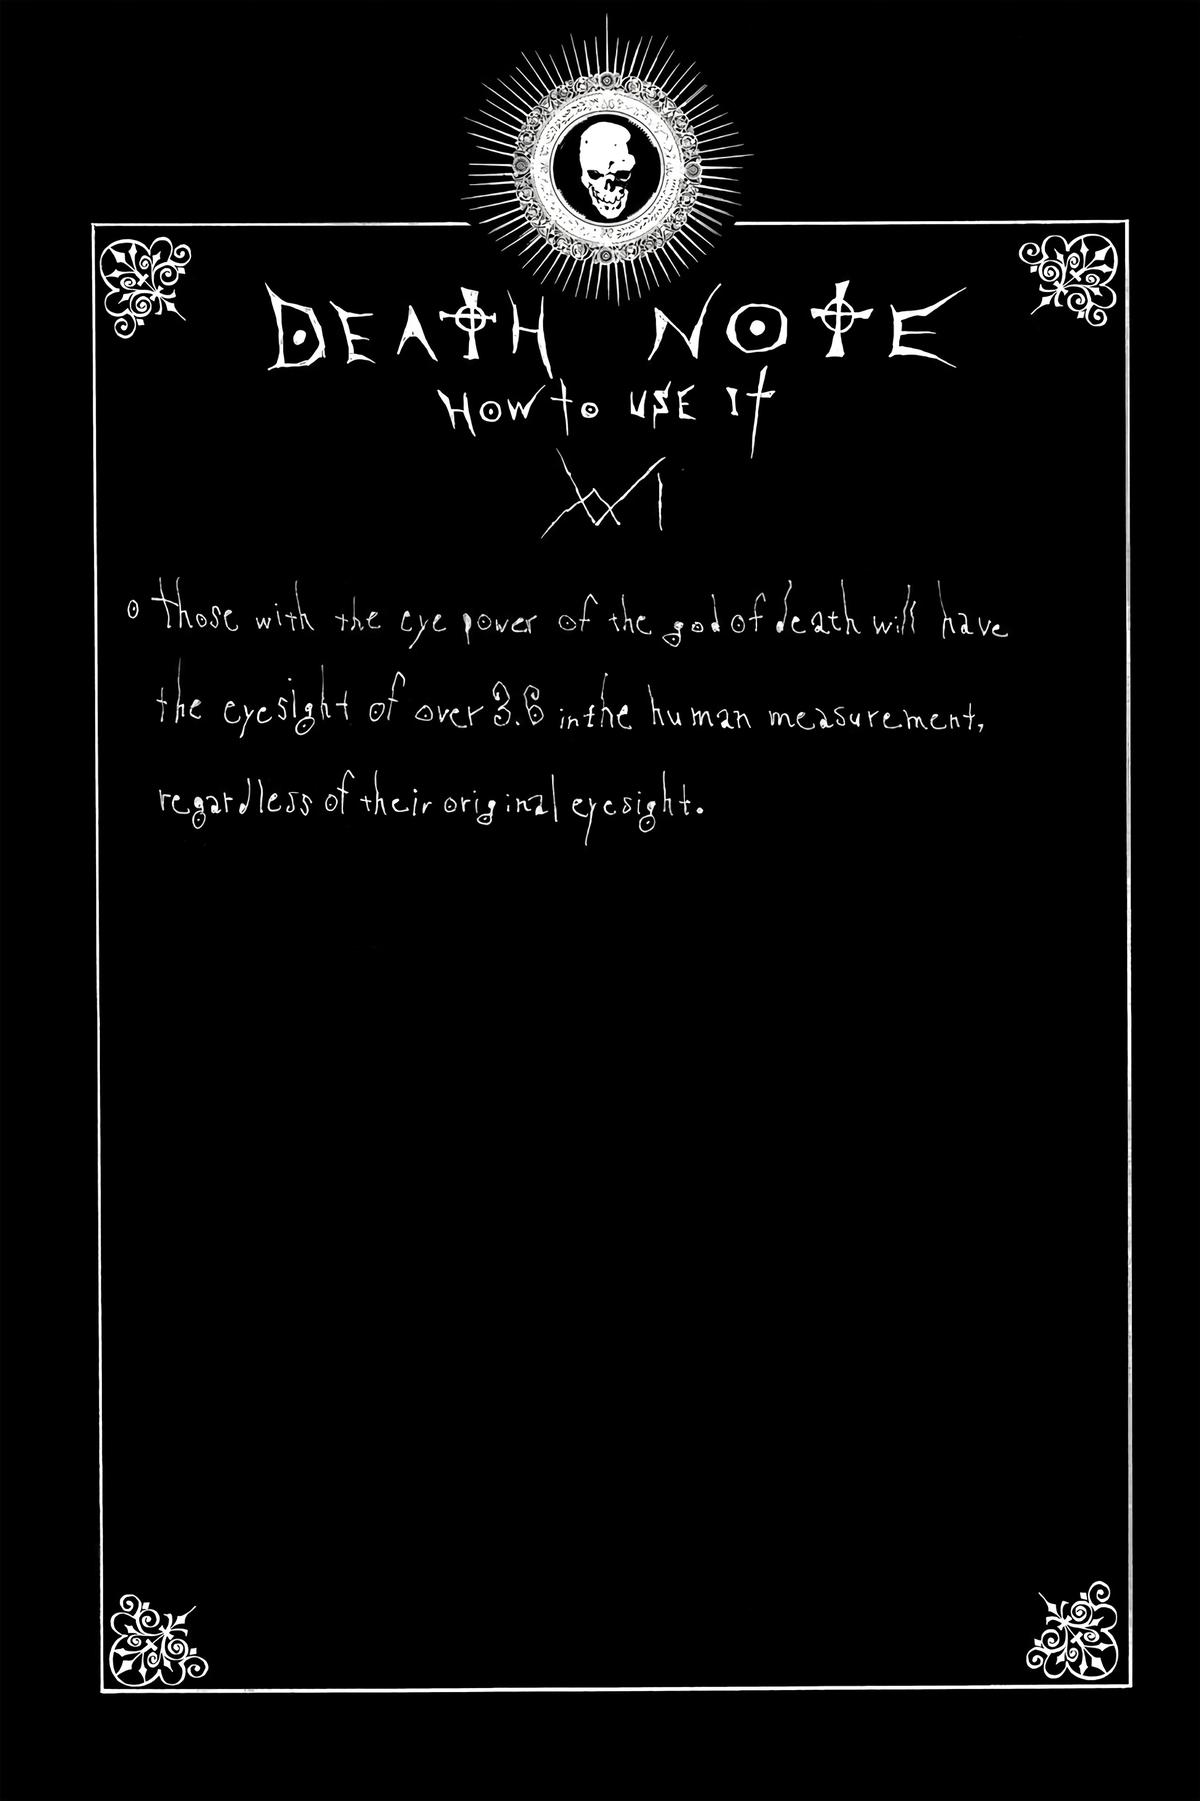 DEATH NOTE
HOW to USE It
XVI
those with the eye power of the god of death will have
the eyesight of over 3.6 in the human measurement,
regardless of their original eyesight.